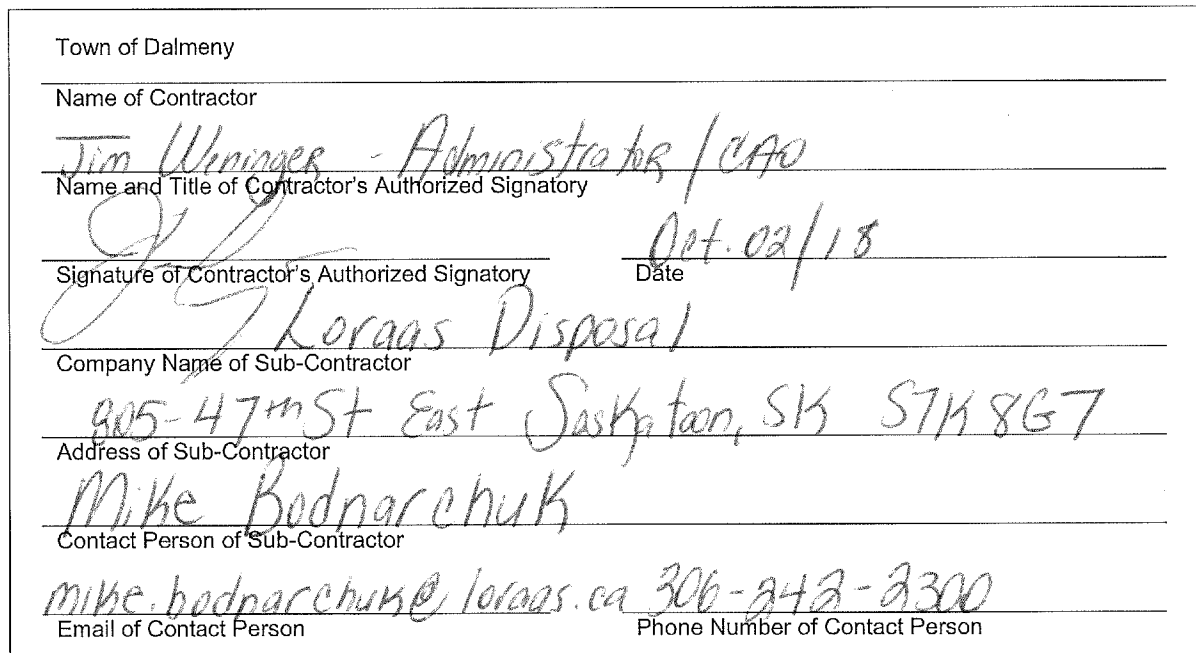 Town of Dalmeny
Name of Contractor
Jim Weninger - Administrator / CAO
Name and Title of Contractor's Authorized Signatory
Oct. 02/18
Signature of Contractor's Authorized Signatory Date
Loraas Disposal
Company Name of Sub-Contractor
805-47th St East Saskatoon, SK S7K 8G7
Address of Sub-Contractor
Mike Bodnarchuk
Contact Person of Sub-Contractor
mike.bodnarchuk@loraas.ca 306-242-2300
Email of Contact Person Phone Number of Contact Person